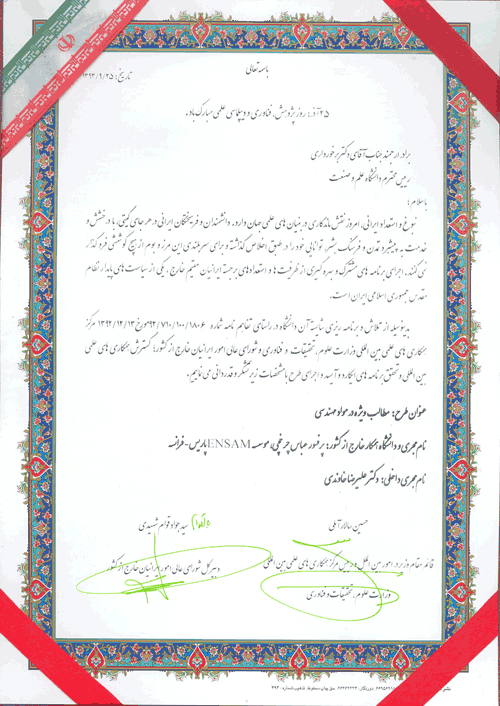 باسمه تعالی
تاریخ: ۱۳۹۳/۹/۲۵
۲۵ آذر، روز پژوهش، فناوری و دیپلماسی علمی مبارک باد.
برادر ارجمند جناب آقای دکتر برخورداری
رییس محترم دانشگاه علم و صنعت
با سلام؛
نبوغ و استعداد ایرانی، امروز نقش ماندگاری در بنیان های علمی جهان دارد. دانشمندان و فرهیختگان ایرانی در هر جای گیتی، با درخشش و
خدمت به پیشبرد تمدن و فرهنگ بشر، توانایی خود را در طبق اخلاص گذاشته و برای سربلندی این مرز و بوم از هیچ کوششی فروگذار
نمی کنند. اجرای برنامه های مشترک و بهره گیری از ظرفیت ها و استعدادهای برجسته ایرانیان مقیم خارج، یکی از سیاست های پایدار نظام
مقدس جمهوری اسلامی ایران است.
بدینوسیله از تلاش و برنامه ریزی شایسته آن دانشگاه در راستای تفاهم نامه شماره ۹۲/۷۱۰/۱۰۰/۱۸۰۶ مورخ ۱۳۹۲/۱۲/۱۳ مرکز
همکاری های علمی بین المللی وزارت علوم، تحقیقات و فناوری و شورای عالی امور ایرانیان خارج از کشور؛ گسترش همکاری های علمی
بین المللی و تحقق برنامه های ابتکاری و آیسد و اجرای طرح با مشخصات زیر تشکر و قدردانی می نماییم.
عنوان طرح: مطالب ویژه در مواد مهندسی
نام مجری و دانشگاه همکار خارج از کشور: پرفسور عباس چرخچی/ موسسه ENSAM پاریس - فرانسه
نام مجری داخلی: دکتر علیرضا خاوندی
حسین سالار آملی
سید جواد قوام شهیدی
قائم مقام وزیر در امور بین الملل و رییس مرکز همکاری های علمی بین المللی
دبیر کل شورای عالی امور ایرانیان خارج از کشور
وزارت علوم، تحقیقات و فناوری